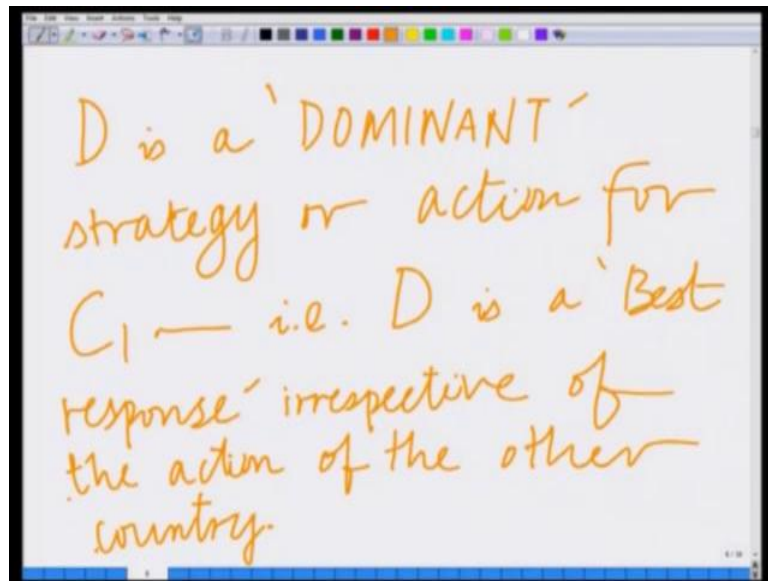 File Edit View Insert Actions Tools Help
D is a 'DOMINANT'
strategy or action for
C₁ — i.e. D is a 'Best
response' irrespective of
the action of the other
country.